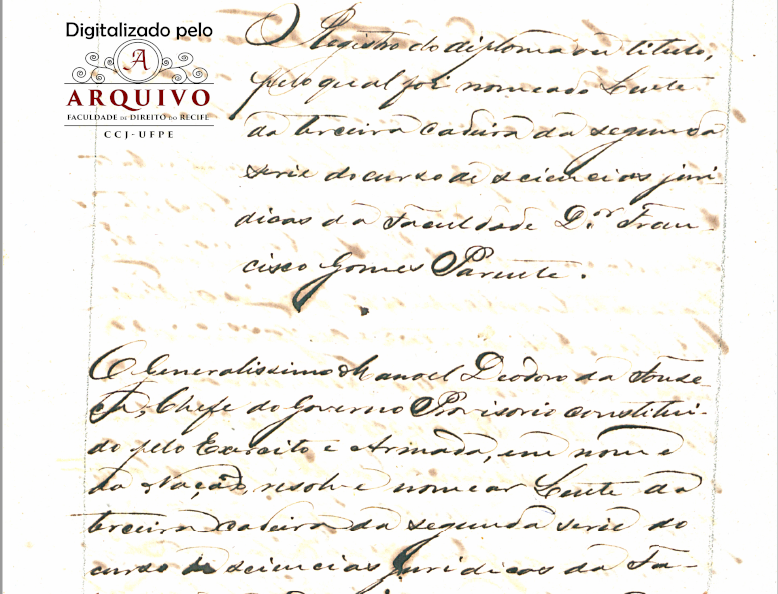 Digitalizado pelo
A
ARQUIVO
FACULDADE DE DIREITO DO RECIFE
CCJ - UFPE
Registro do diploma ou titulo,
pelo qual foi nomeado Lente
da terceira cadeira da segunda
serie do curso de sciencias juri-
dicas da Faculdade D.or Fran-
cisco Gomes Parente.
O Generalissimo Manoel Deodoro da Fonse-
ca, Chefe do Governo Provisorio constitui-
do pelo Exercito e Armada, em nome
da Nação, resolve nomear Lente da
terceira cadeira da segunda serie do
curso de sciencias Juridicas da Fa-